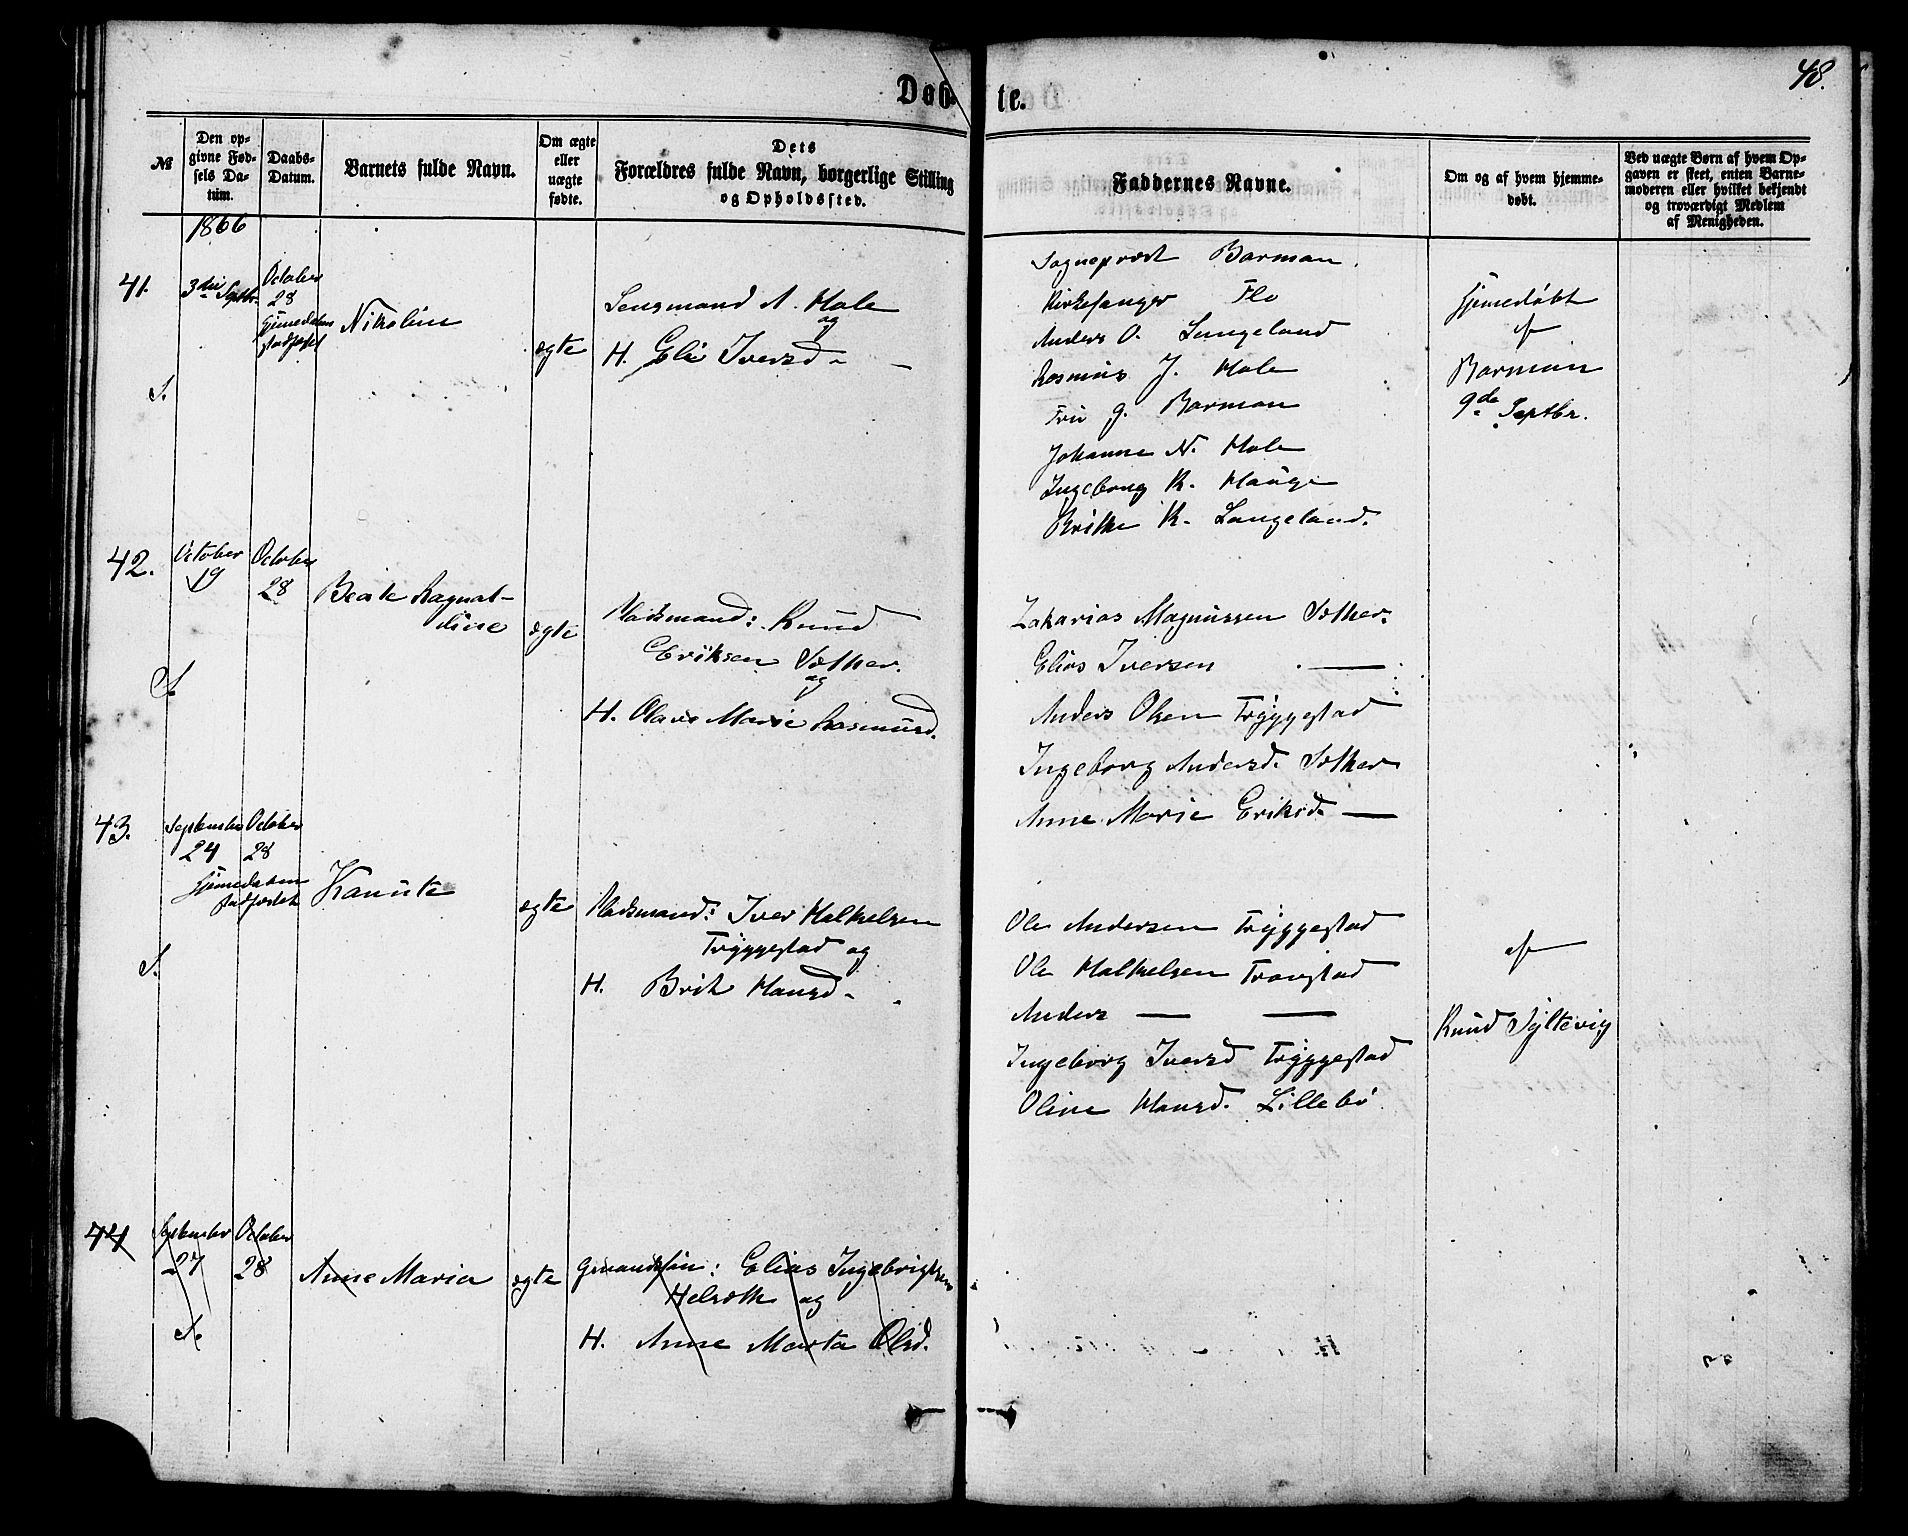 48.
Døbte.
№
Den opgivne Fødsels Datum.
Daabs-Datum.
Barnets fulde Navn.
Om ægte eller uægte fødte.
Dets Forældres fulde Navn, borgerlige Stilling og Opholdssted.
Faddernes Navne.
Om og af hvem hjemmedøbt.
Ved uægte Børn af hvem Opgaven er skeet, enten Barnemoderen eller hvilket bekjendt og troværdigt Medlem af Menigheden.
1866
41.
3die Septbr.
October
28
Hjemedaaben
stadfæstet
S.
Nikoline
ægte
Lensmand A. Hole
og
H. Eli Iversd -
Sogneprest Barman.
Kirkesanger Flo
Anders O. Langeland
Rasmus J. Hole
Fru G. Barman
Johanne N. Hole
Ingeborg K. Hauge
Brithe K. Langeland.
Hjemedøbt
af
Barman
9de Septbr.
42.
October
19
October
28
S.
Beate Ragnal-
dine
ægte
Pladsmand: Knud
Eriksen Sæther.
og
H. Olave Marie Rasmusd.
Zakarias Magnussen Sæther.
Elias Iversen —
Anders Olsen Tryggestad
Ingeborg Andersd. Sæther
Anne Marie Eriksd. —
43.
September
24
October
28
Hjemedaaben
stadfæstet
S.
Kanute
ægte
Pladsmand: Iver Halkelsen
Tryggestad og
H. Brit Hansd -
Ole Andersen Tryggestad
Ole Halkelsen Travstad
Anders — —
Ingeborg Iversd Tryggestad
Oline Hansd. Lillebø
af
Knud Syltevig
44
September
27
October
28
S.
Anne Maria
ægte
Gmandssøn: Elias Ingebrigtsen
Helsæth og
H. Anne Marta Olsd.